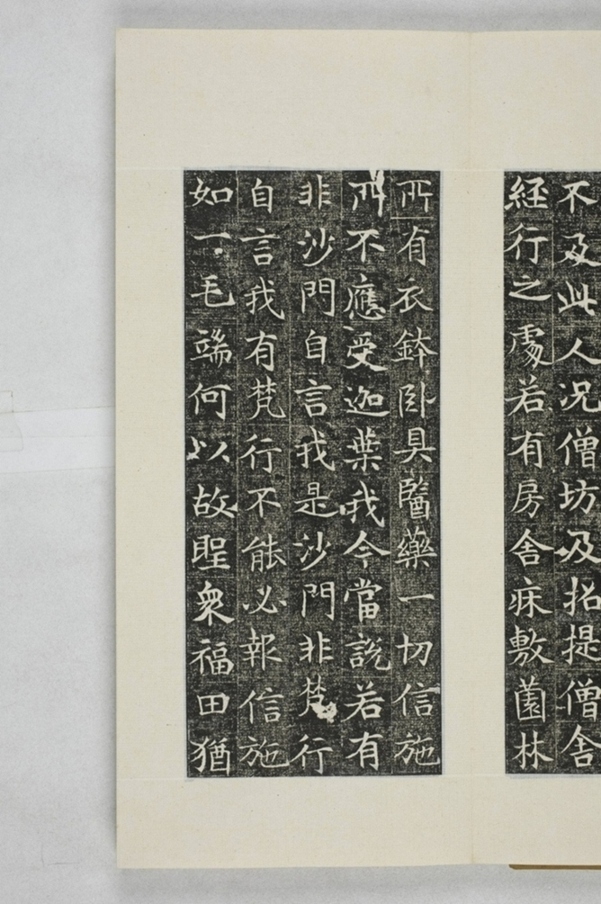 不及此人况僧坊及招提僧舍
経行之處若有房舍床敷薗林
所有衣鉢卧具醫藥一切信施
所不應受迦葉我今當説若有
非沙門自言我是沙門非梵行
自言我有梵行不能必報信施
如一毛端何以故聖衆福田猶